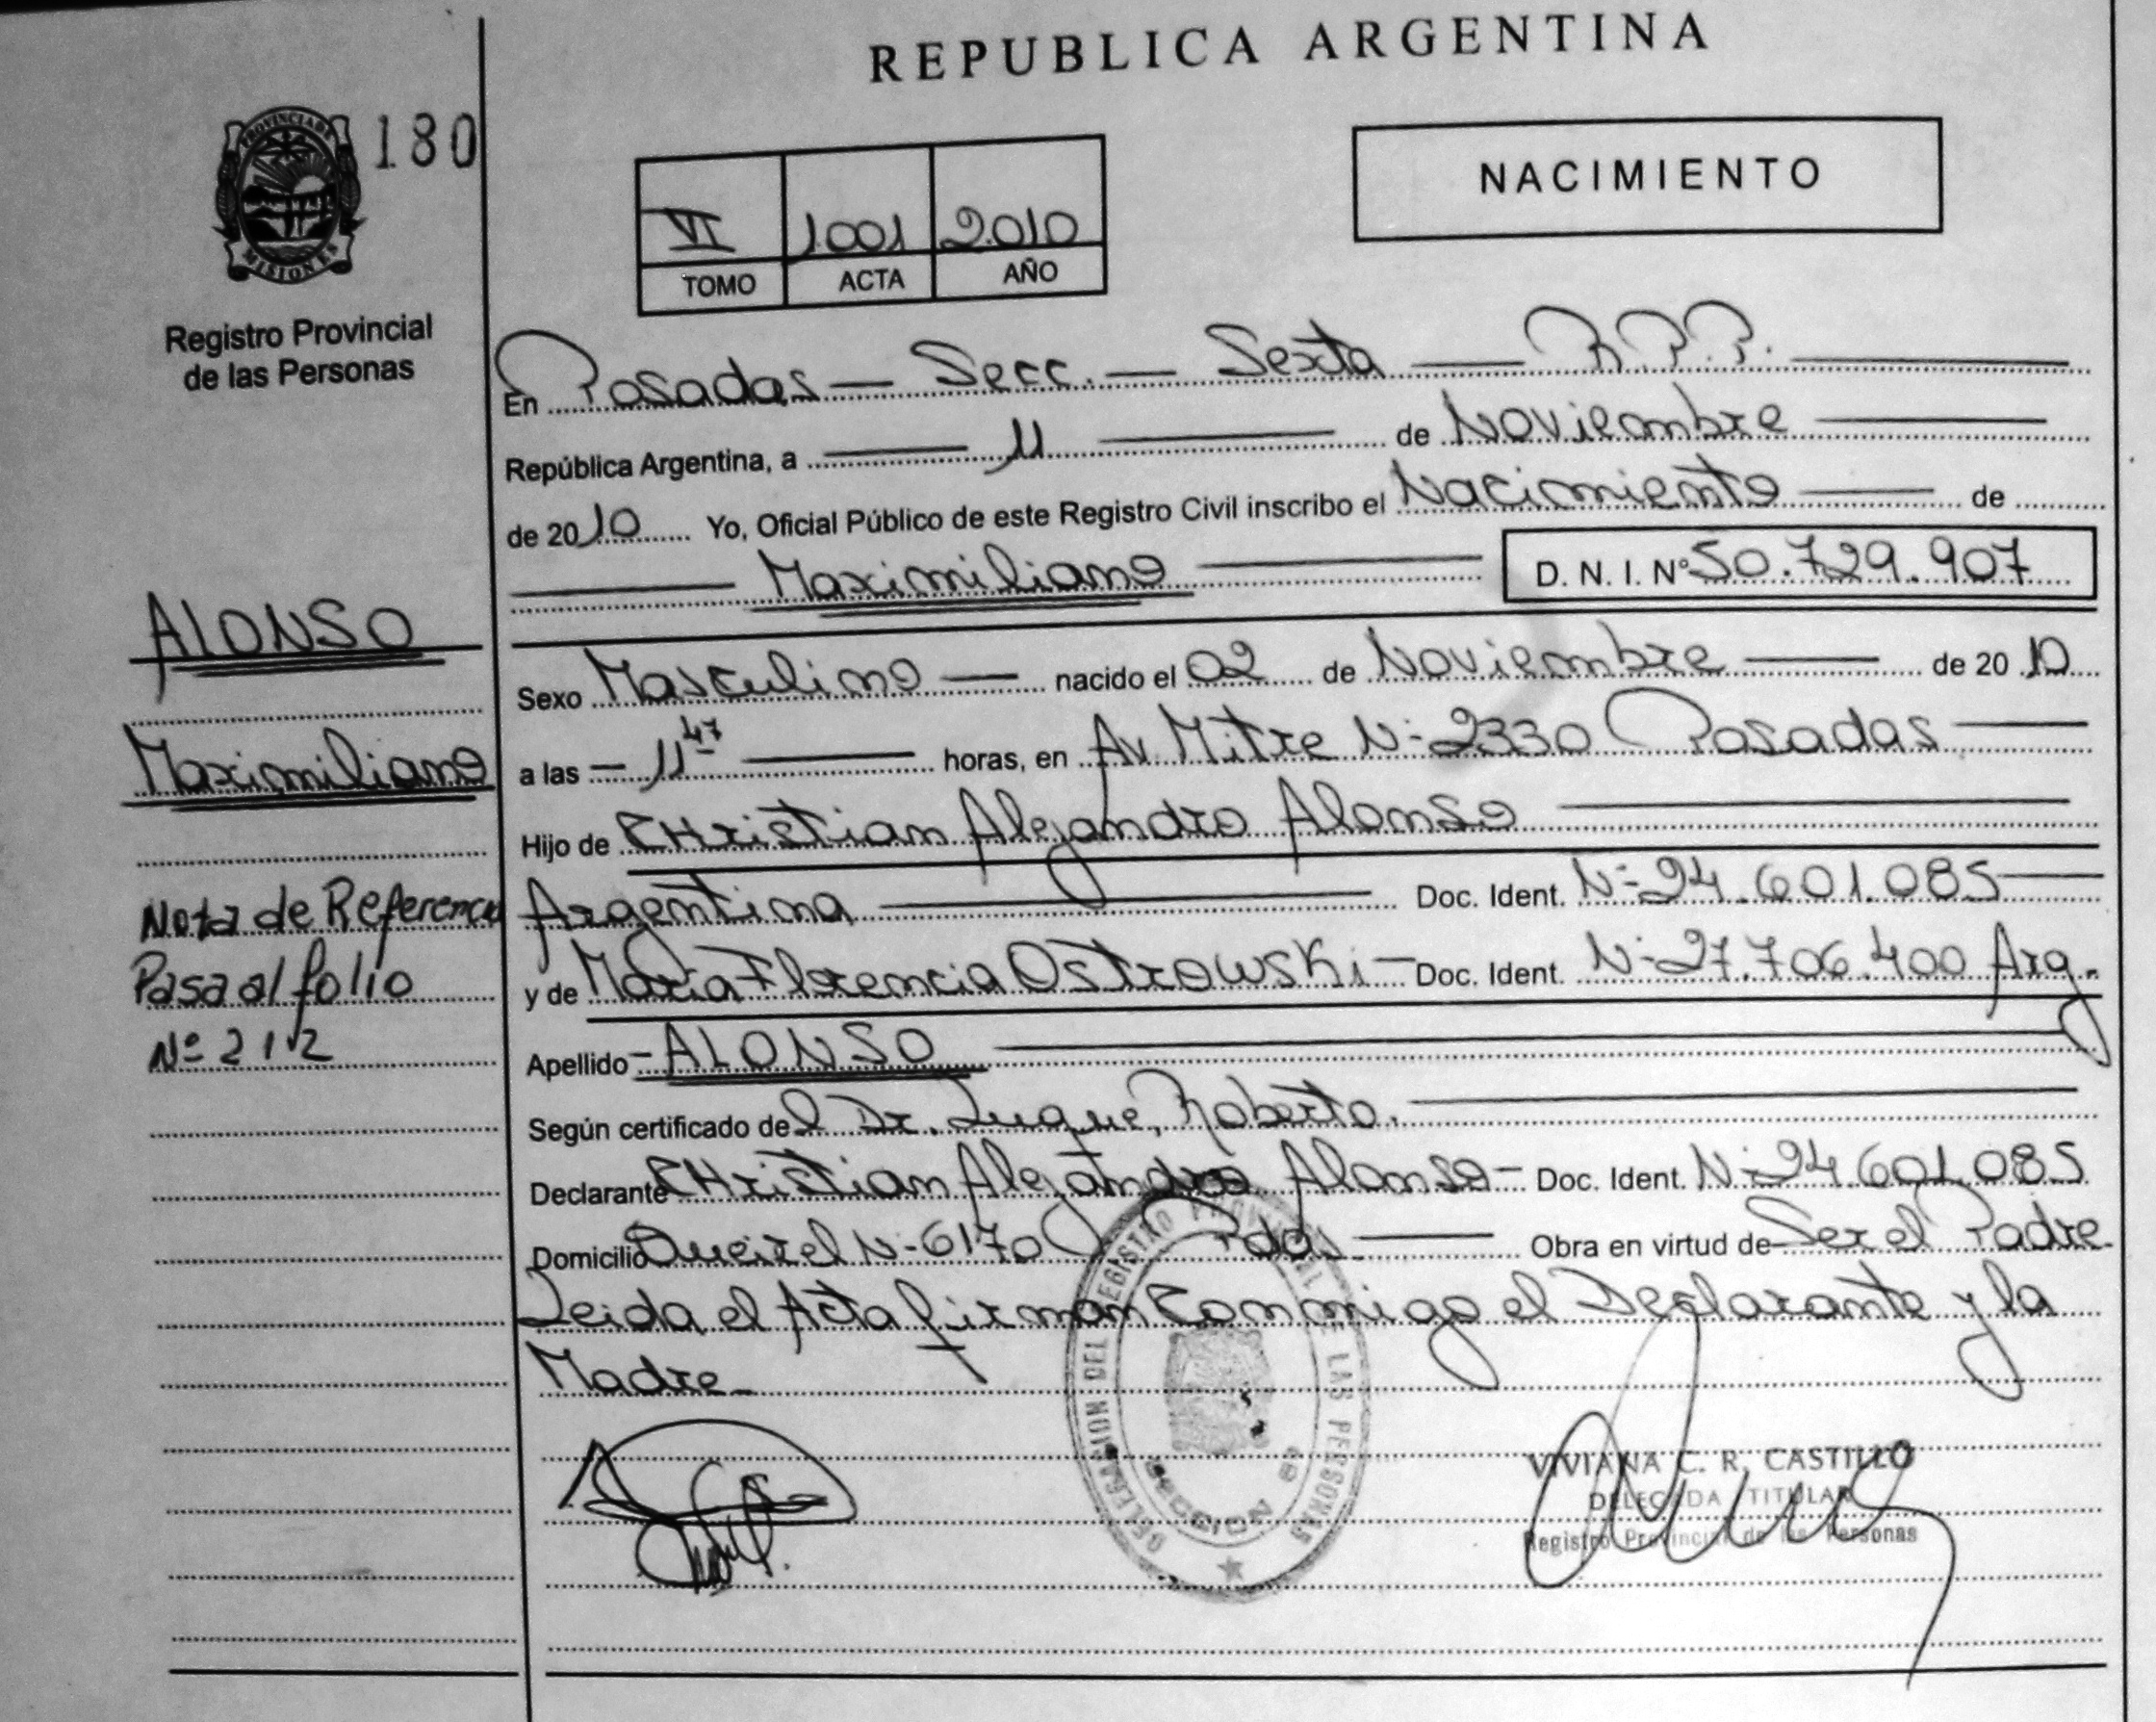 REPUBLICA ARGENTINA
PROVINCIA DE
MISIONES
180
Registro Provincial
de las Personas
VI 1001 2010
TOMO ACTA AÑO
NACIMIENTO
En Posadas — Secc. — Sexta — R.P.P.
República Argentina, a — 11 — de Noviembre
de 2010 Yo, Oficial Público de este Registro Civil inscribo el Nacimiento — de
Maximiliano D. N. I. Nº 50.729.907
ALONSO
Maximiliano
Nota de Referencia
Pasa al folio
Nº 212
Sexo Masculino — nacido el 02 de Noviembre — de 2010
a las — 11 47 — horas, en Av. Mitre Nº 2330 Posadas —
Hijo de CHristian Alejandro Alonso —
Argentina — Doc. Ident. Nº 24.601.085 —
y de María Florencia Ostrowski — Doc. Ident. Nº 27.706.400 Arg.
Apellido - ALONSO —
Según certificado del Dr. Luque, Roberto. —
Declarante CHristian Alejandro Alonso - Doc. Ident. Nº 24.601.085
Domicilio Nº 6170 Pdas — Obra en virtud de Ser el Padre
Leida el Acta firman Conmigo el Declarante y la
Madre -
DELEGACION DEL REGISTRO PROVINCIAL DE LAS PERSONAS
SECCION 6ª
VIVIANA C. R. CASTILLO
DELEGADA TITULAR
Registro Provincial de las Personas